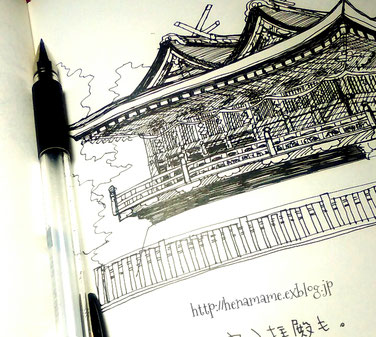 http://henamame.exblog.jp
拝殿も。